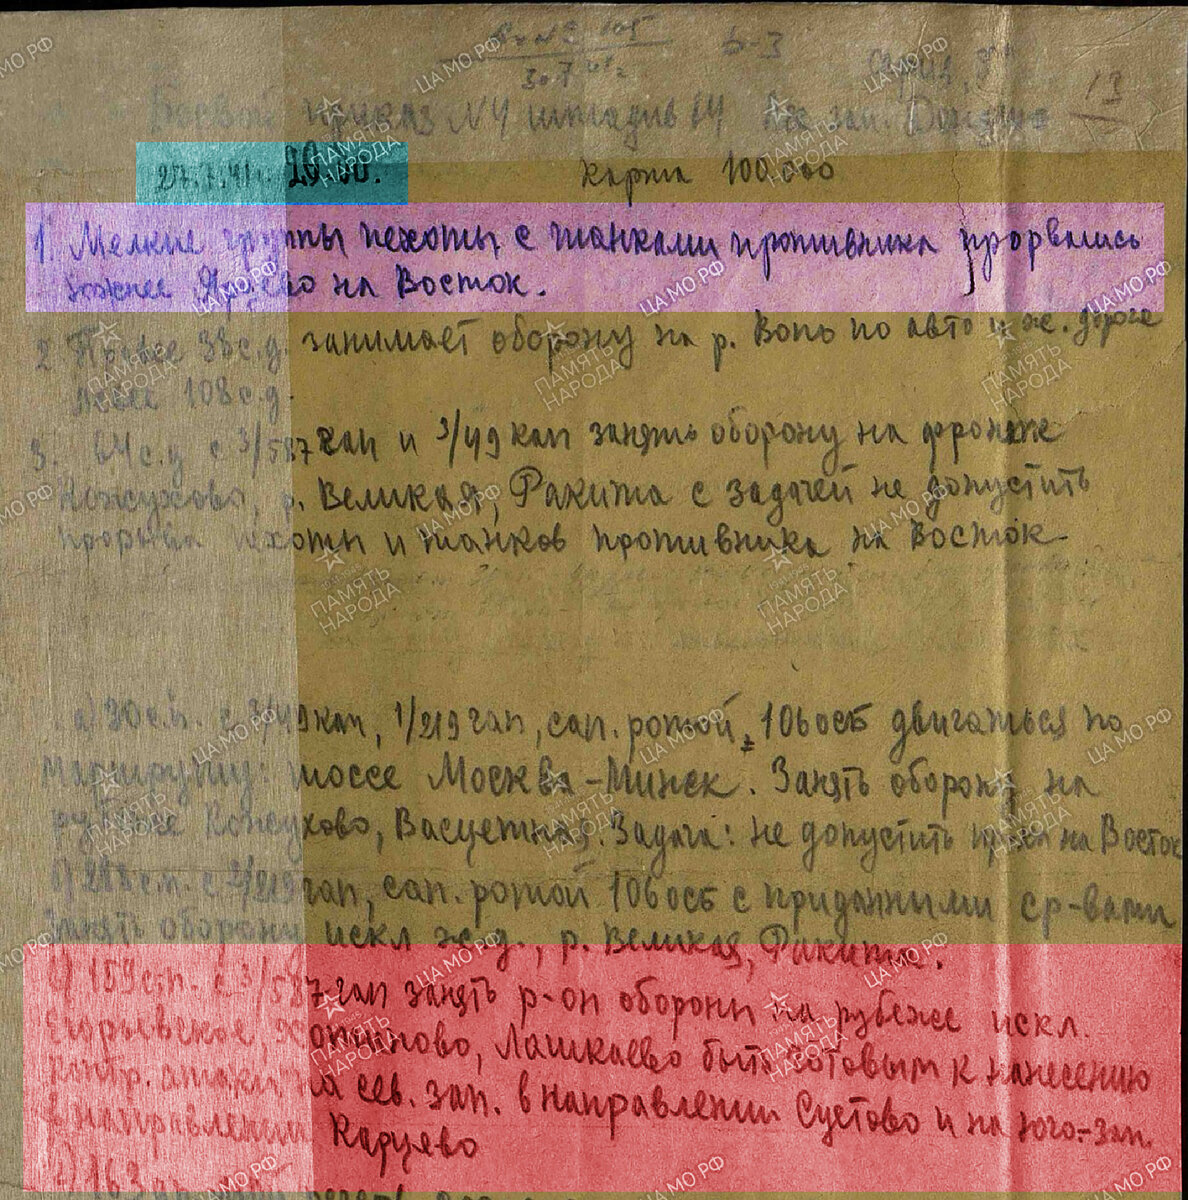 Вх №2 105
30.7.41г
б-3
13
Боевой приказ №4 штадив 64
27.7.41г. 20.00.
карта 100.000
1. Мелкие группы пехоты с танками противника прорвались
южнее Ярцево на Восток.
2 Правее 38 с.д. занимает оборону на р. Вопь по авто и ж. дороге
левее 108 с.д.
3. 64 с.д с 3/587 гап и 3/49 кап занять оборону на фронте
Кожухово, р. Великая, Ракита с задачей не допустить
прорыва пехоты и танков противника на Восток
а) 30 с.п. с 3/49 кап, 1/219 гап, сап. ротой 106 осб двигаться по
маршруту: шоссе Москва-Минск. Занять оборону на
рубеже Кожухово, Задача: не допустить на Восток
б) 288 с.п. с 2/219 гап, сап. ротой 106 осб с приданными ср-вами
занять оборону искл ж.д., р. Великая, Ракита.
в) 159 с.п. с 3/587 гап занять р-он обороны на рубеже искл.
Егорьевское, Лашкаево быть готовым к нанесению
контр. атаки на сев. зап. в направлении Суетово и на юго-зап.
в направлении Карцево
г) 163